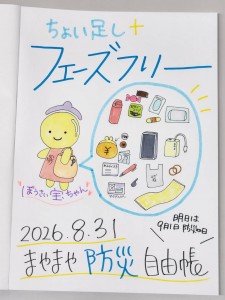 ちょい足し+
フェーズフリー
ぼうさい宝ちゃん
明日は
9月1日 防災の日
2026.8.31
まやまや 防災 自由帳